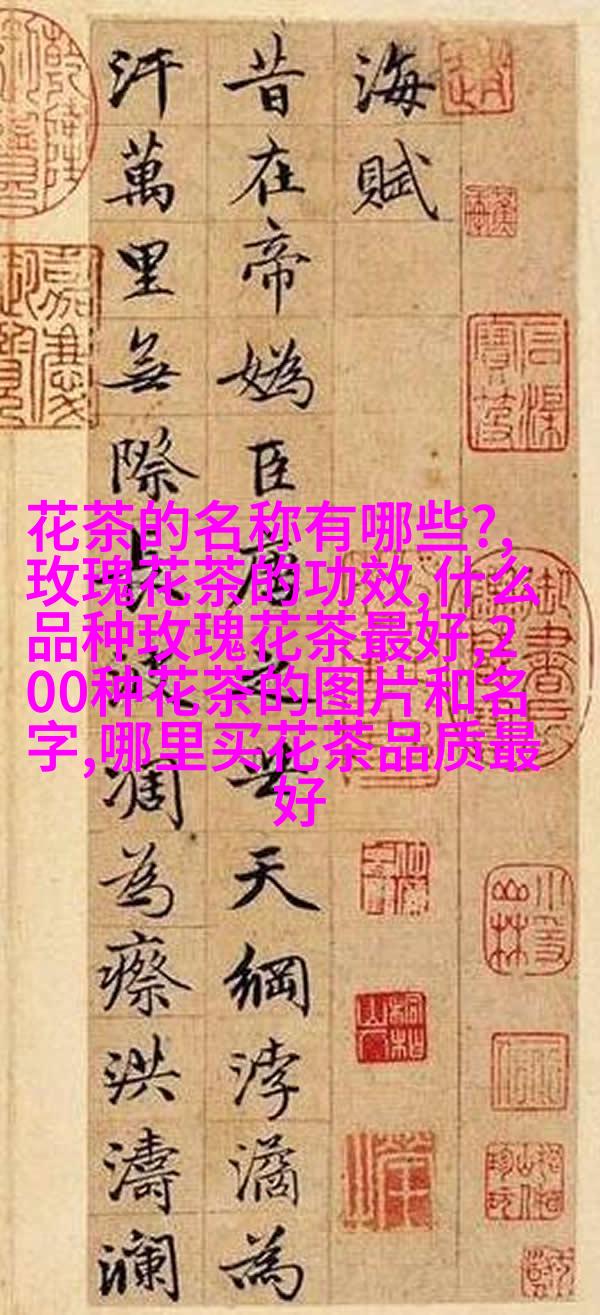 海賦
昔在帝媯臣唐之世天綱浡潏為
汗萬里無際長波凋為瘵洪濤瀾
花茶的名称有哪些?,
玫瑰花茶的功效,什么
品种玫瑰花茶最好,2
00种花茶的图片和名
字,哪里买花茶品质最
好